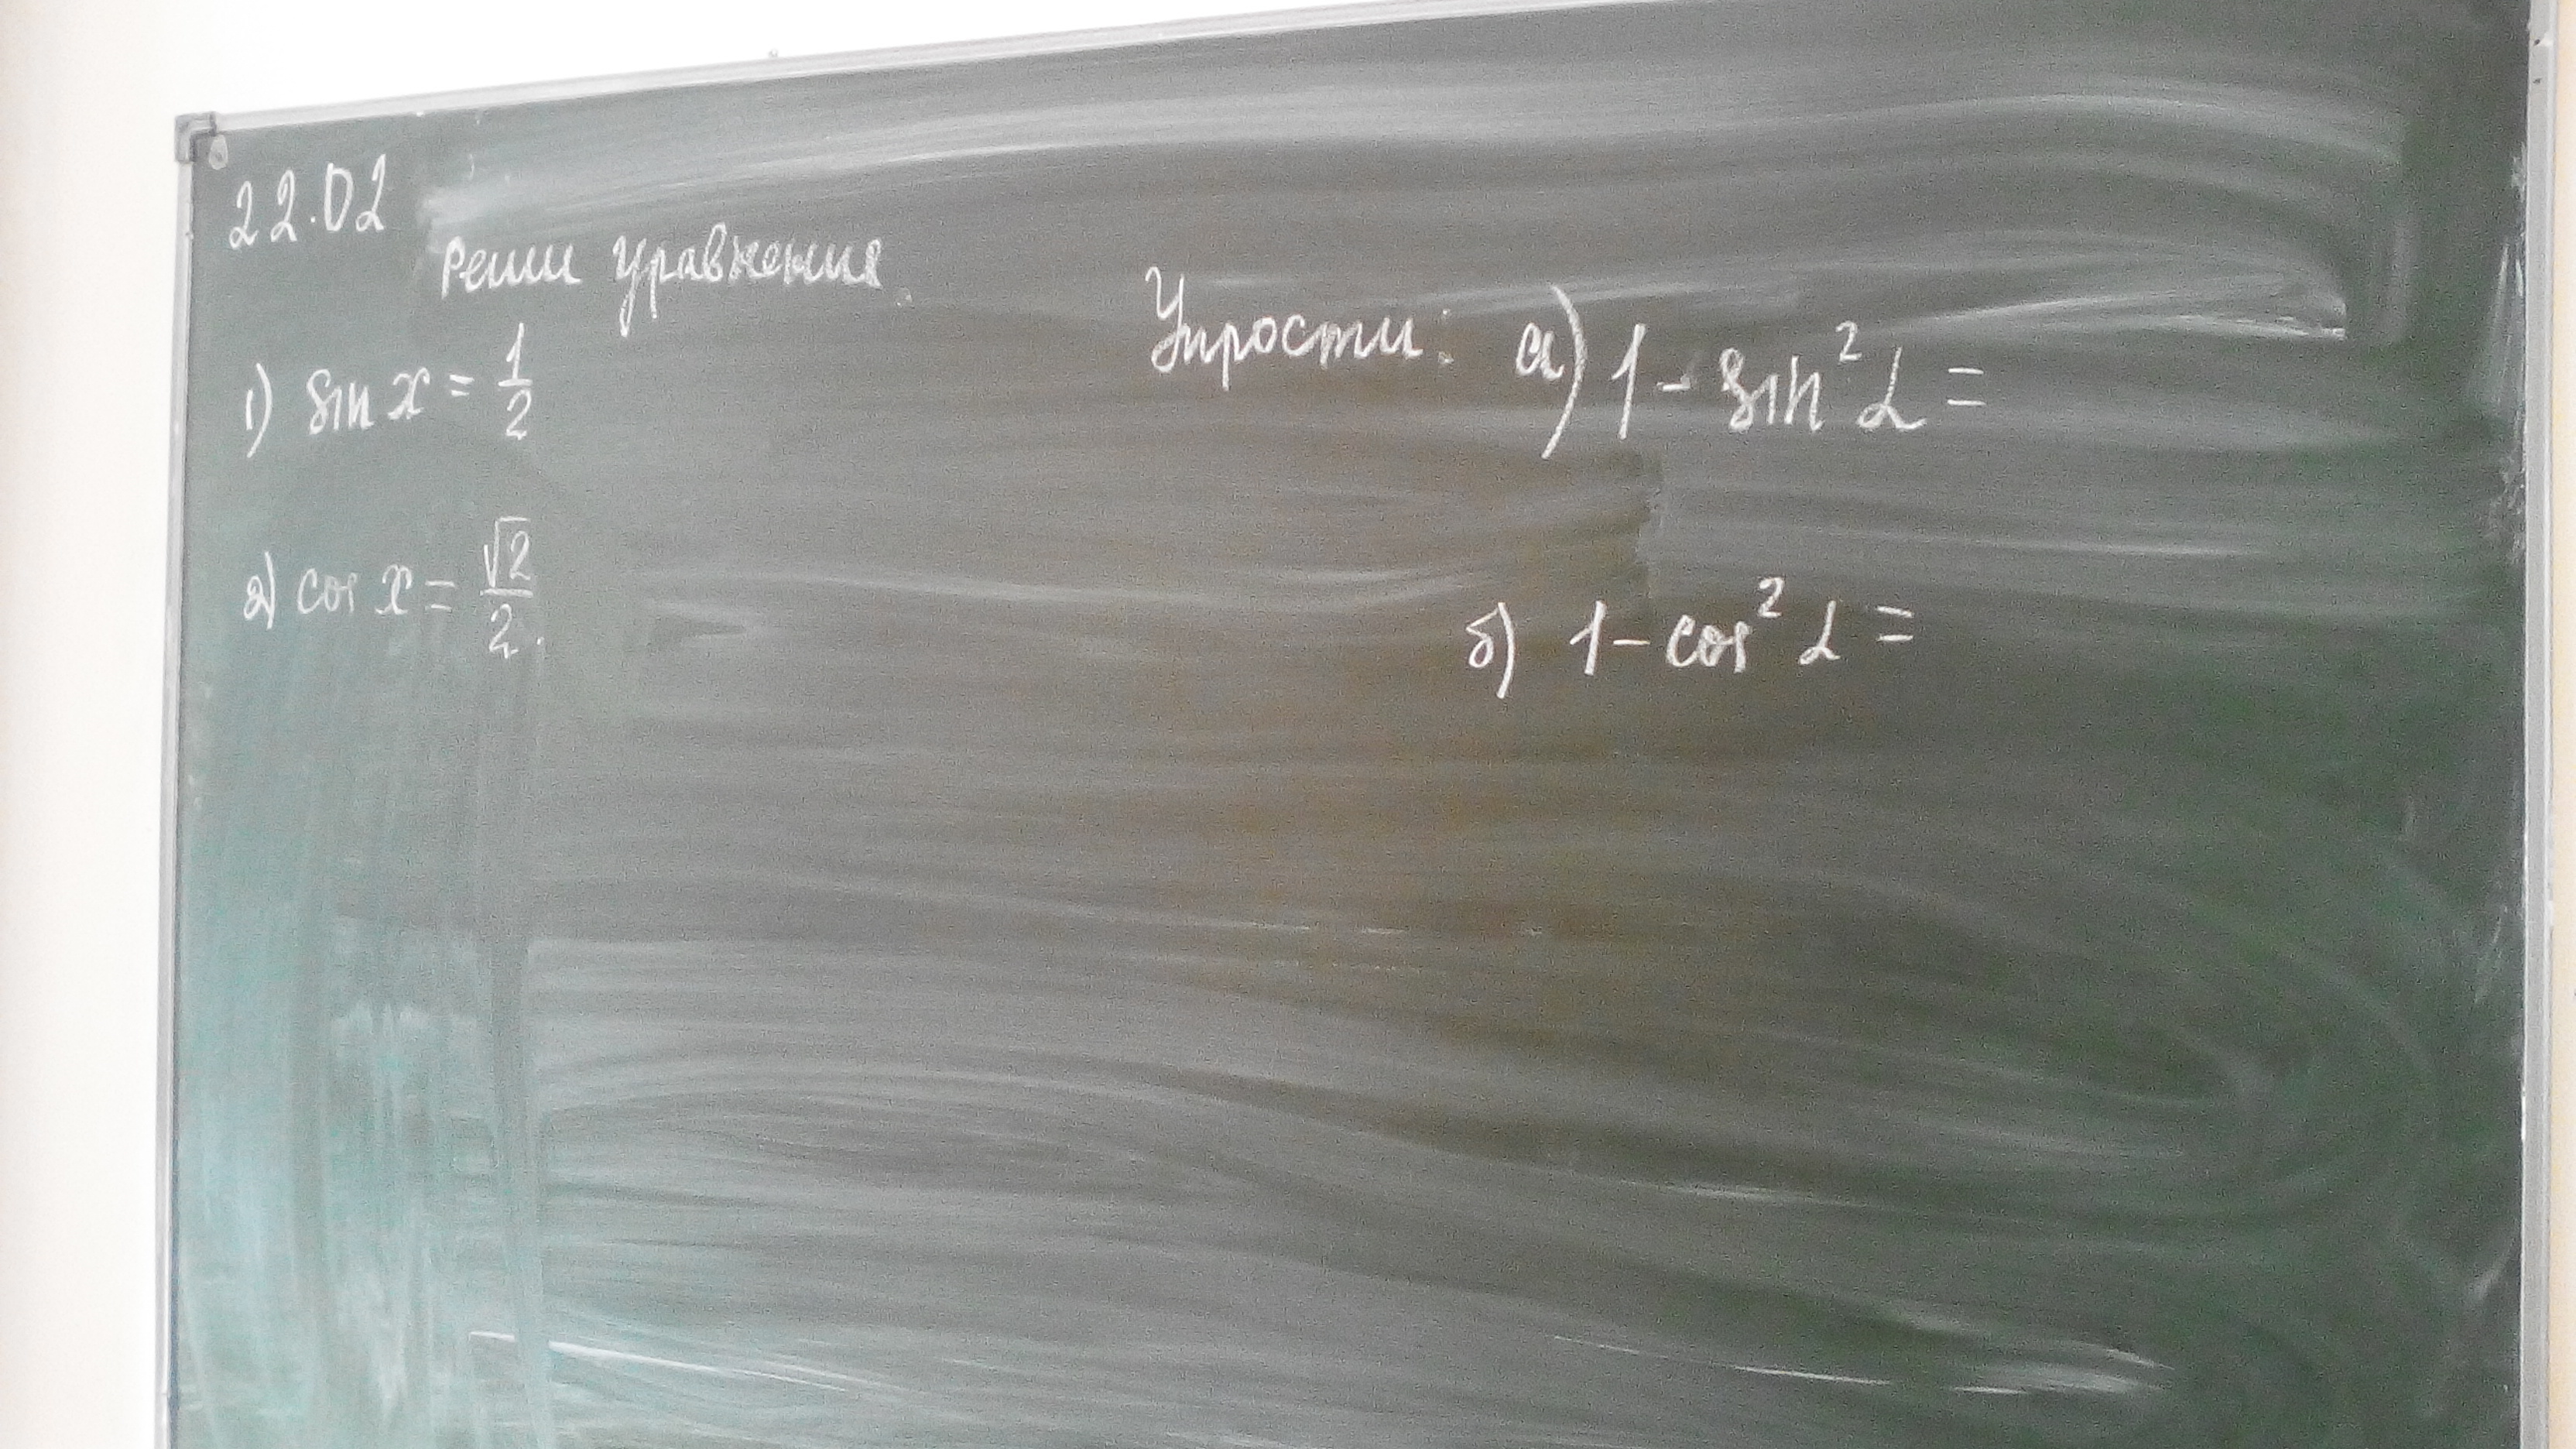 22.02
Реши уравнения.
1) sin x = 1/2
2) cos x = √2/2.
Упрости: а) 1 - sin²α =
б) 1 - cos²α =